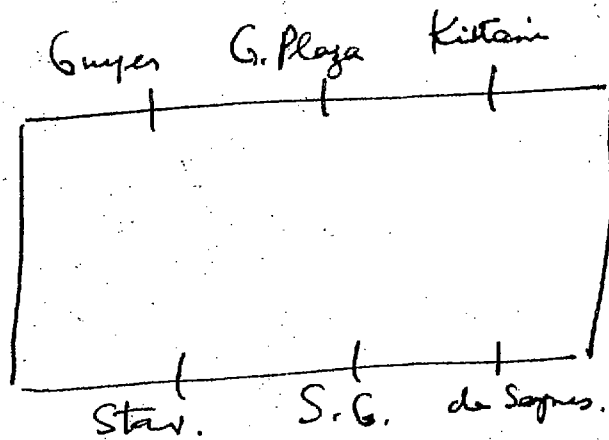 Guyer G. Plaza Kittani
Stav. S.G. de Soynes.